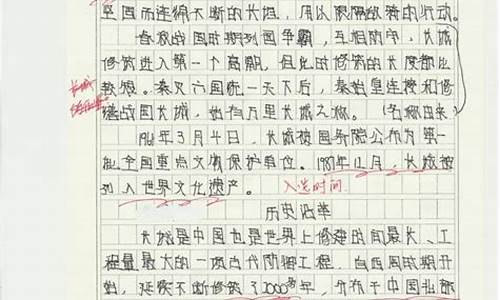 坚固而连绵不断的长垣，用以限隔敌骑的行动。
春秋战国时期列国争霸，互相防守，长城
修筑进入第一个高潮，但此时修筑的长度都比
较短。秦灭六国统一天下后，秦始皇连接和修
缮战国长城，始有万里长城之称。（名称由来）
长城
1961年3月4日，长城被国务院公布为第一
批全国重点文物保护单位。1987年12月，长城被
列入世界文化遗产。入选时间
历史沿革
长城是中国也是世界上修建时间最长、工
程量最大的一项古代防御工程，自西周时期开
始，延续不断修筑了2000多年，分布于中国北部